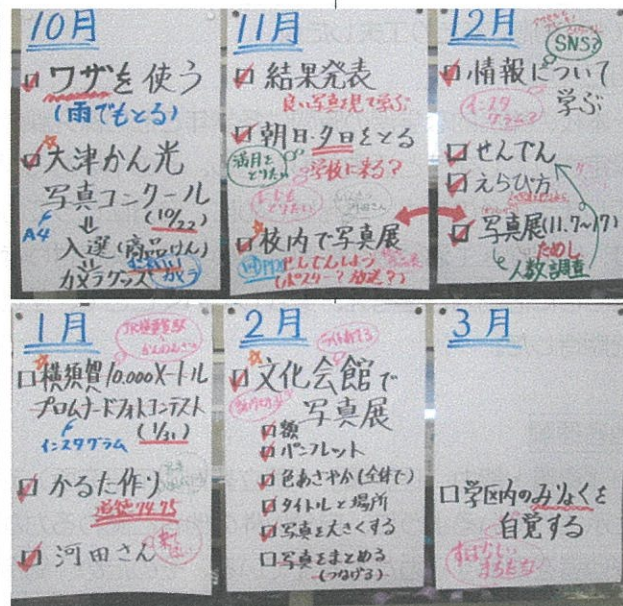 10月
ワザを使う
(雨でもとる)
大津かん光
写真コンクール
(10/22)
A4
入選(商品けん)
カメラグッズ カメラ
11月
結果発表
良い写真を見て学ぶ
朝日・夕日をとる
満月を
とりたい
学校に来る?
校内で写真展
せんでんしよう
(ポスター?放送?)
12月
SNS?
情報について
学ぶ
インスタ
グラム?
せんでん
えらび方
写真展(11.7~17)
ためし
人数調査
1月
横須賀10.000メートル
プロムナードフォトコンテスト
インスタグラム
(1/31)
かるた作り
道徳74.75
河田さん
2月
文化会館で
写真展
額
パンフレット
色あざやか(全体で)
タイトルと場所
写真を大きくする
写真をまとめる
(つなげる)
3月
学区内のみりょくを
自覚する
すばらしい